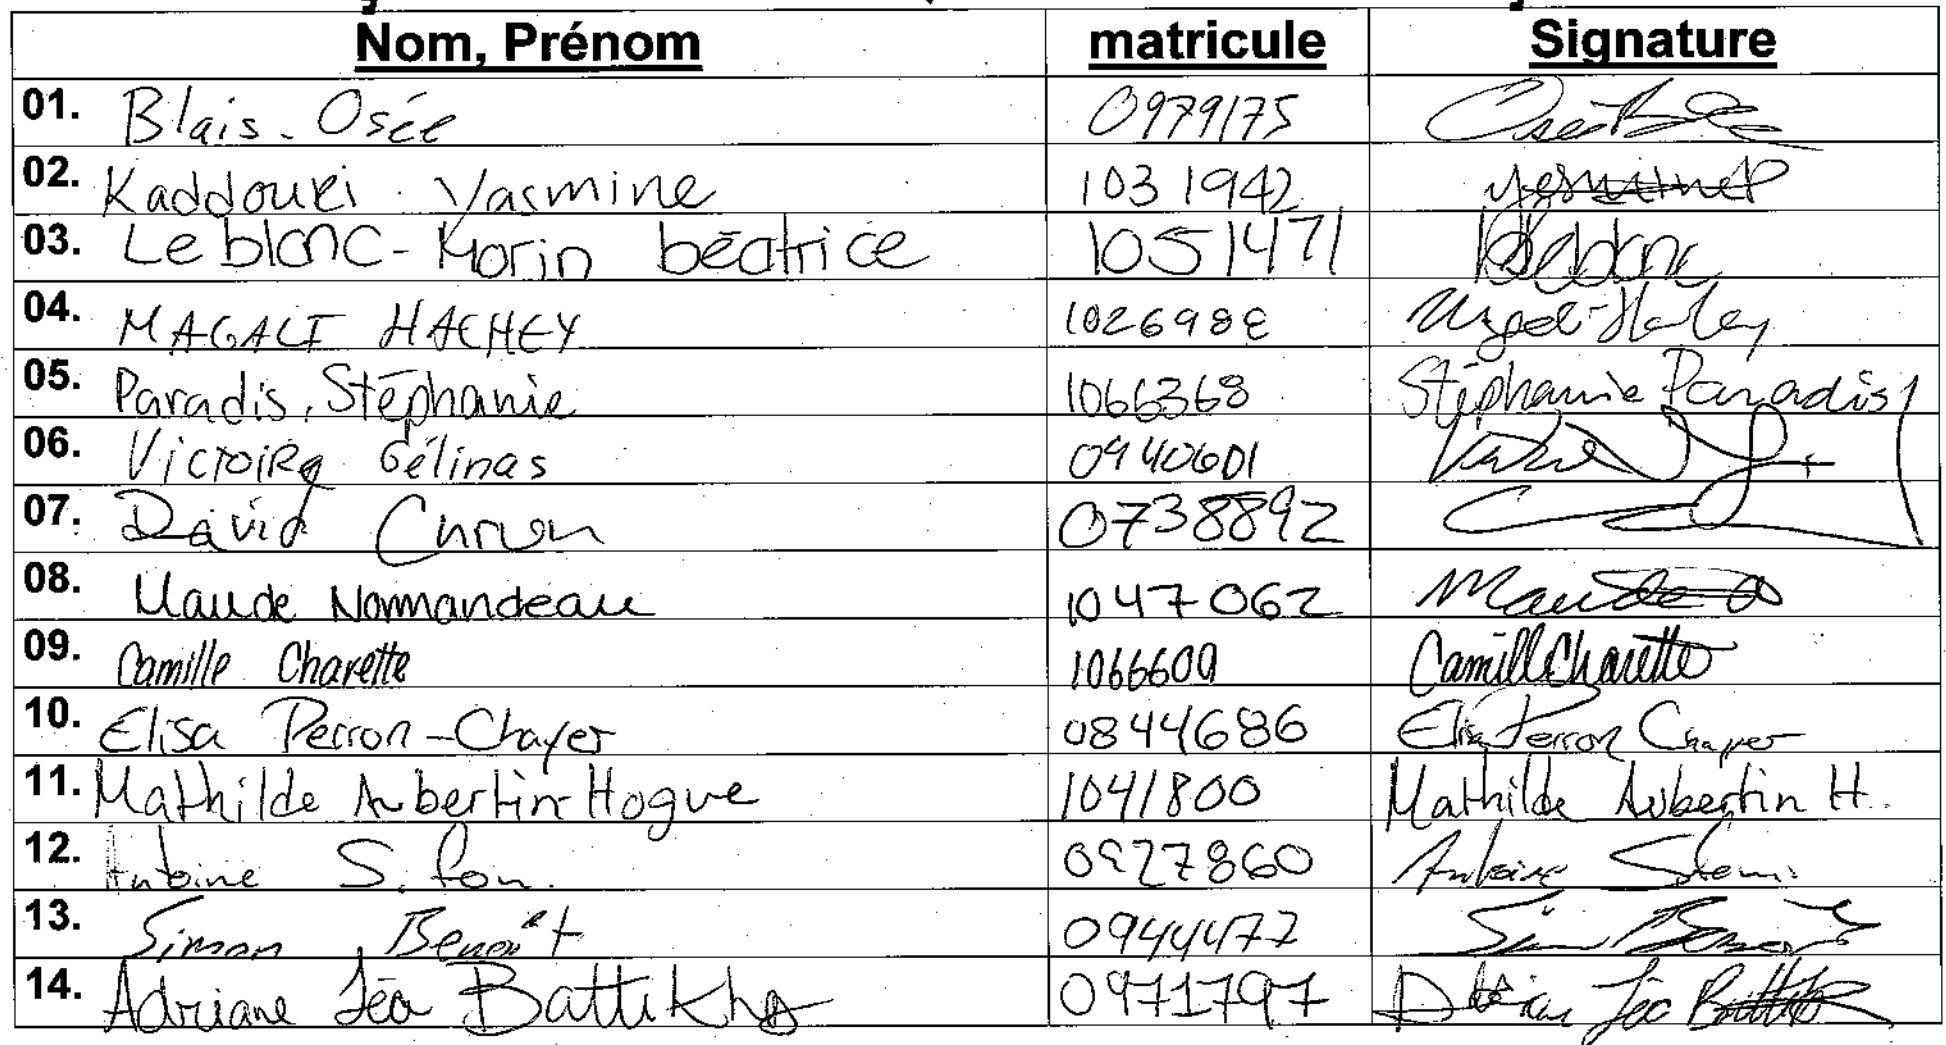 Nom, Prénom matricule Signature
01. Blais - Osée 0979175
02. Kaddouri Yasmine 1031942
03. Leblanc-Morin béatrice 1051471 Leblanc
04. MAGALI HACHEY 1026988
05. Paradis, Stéphanie 1066368 Stéphanie Paradis
06. Victoire Gélinas 0940601
07. David 0738892
08. Maude Normandeau 1047062 Maude
09. Camille Charette 1066609 Camille Charette
10. Elisa Perron-Chayer 0844686 Elisa Perron Chayer
11. Mathilde Aubertin-Hogue 1041800 Mathilde Aubertin H.
12. Antoine S. 0927860 Antoine
13. Simon Benoît 0944477
14. Adriane Léa Battikha 0971797 Léa